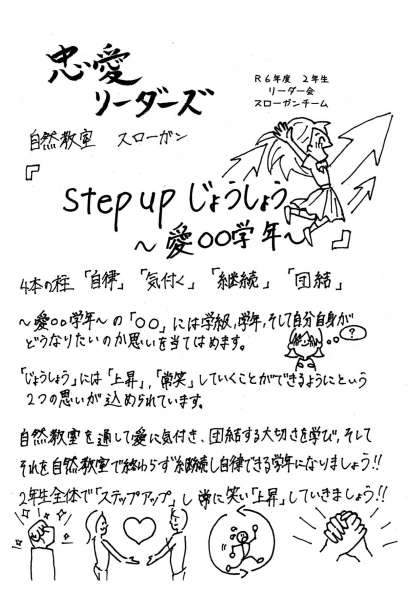 忠愛
リーダーズ
R6年度 2年生
リーダー会
スローガンチーム
自然教室 スローガン
『
step up じょうしょう
～愛○○学年～
』
4本の柱「自律」「気付く」「継続」「団結」
～愛○○学年～の「○○」には学級,学年,そして自分自身が
どうなりたいのか思いを当てはめます。
?
「じょうしょう」には「上昇」,「常笑」していくことができるようにという
2つの思いが込められています。
自然教室を通して愛に気付き、団結する大切さを学び、そして
それを自然教室で終わらず継続し自律できる学年になりましょう!!
2年生全体で「ステップアップ」し常に笑い「上昇」していきましょう!!